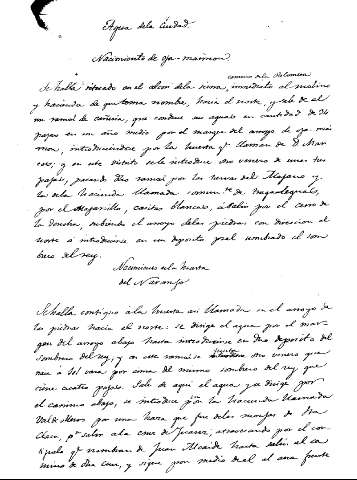 Agua de la Ciudad.
Nacimiento de oja-maimon
camino de la Palomera
Se halla situado en el alveo de la sierra, inmediato al molino
y hacienda de que toma nombre, hacia el norte, y sale de el
un ramal de cañeria, que conduce sus aguas en cantidad de 24
pajas en un año medio por el margen del arroyo de oja mai-
mon, introduciendose por la huerta qe llaman de D. Mar
cos; y en este distrito se le introduce otro venero de unas tres
pajas, pasando dho ramal por las tierras del
y la de la hacienda llamada comunmte. de
por el casitas blancas, a salir por el cerro de
la subiendo el arroyo de las piedras con direccion al
norte a introducirse en un deposito gral nombrado el som-
brero del rey.
Nacimiento en la huerta
del Naranjo
Se halla contiguo a la huerta asi llamada en el arroyo de
las piedras hacia el norte: se dirige el agua por el mar-
gen del arroyo abajo hasta introducirse en dho deposito del
sombrero del rey, y en este ramal se introduce otro venero que
nace a tal vara por cima del mismo sombrero del rey que
tiene cuatro pajas. Sale de aqui el agua ya dirige por
el camino abajo, se introduce por la hacienda llamada
Valdeflores por una haza que fue de las monjas de Sta
Clara, pa salir a la cruz de Juarez, atravesando por el cor-
tijuelo qe nombran de Juan Alcaide hasta salir al ca
mino de dha cruz, y sigue por medio de el al ama frente